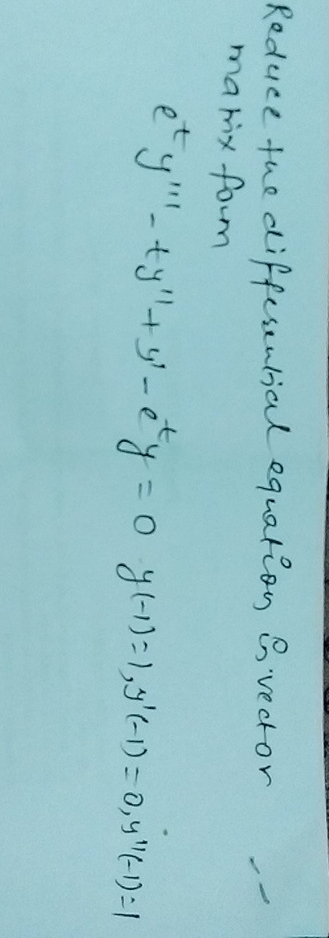 Reduce the differential equation in vector
matrix form
e^t y''' - ty'' + y' - e^t y = 0 y(-1)=1, y'(-1)=0, y''(-1)=1